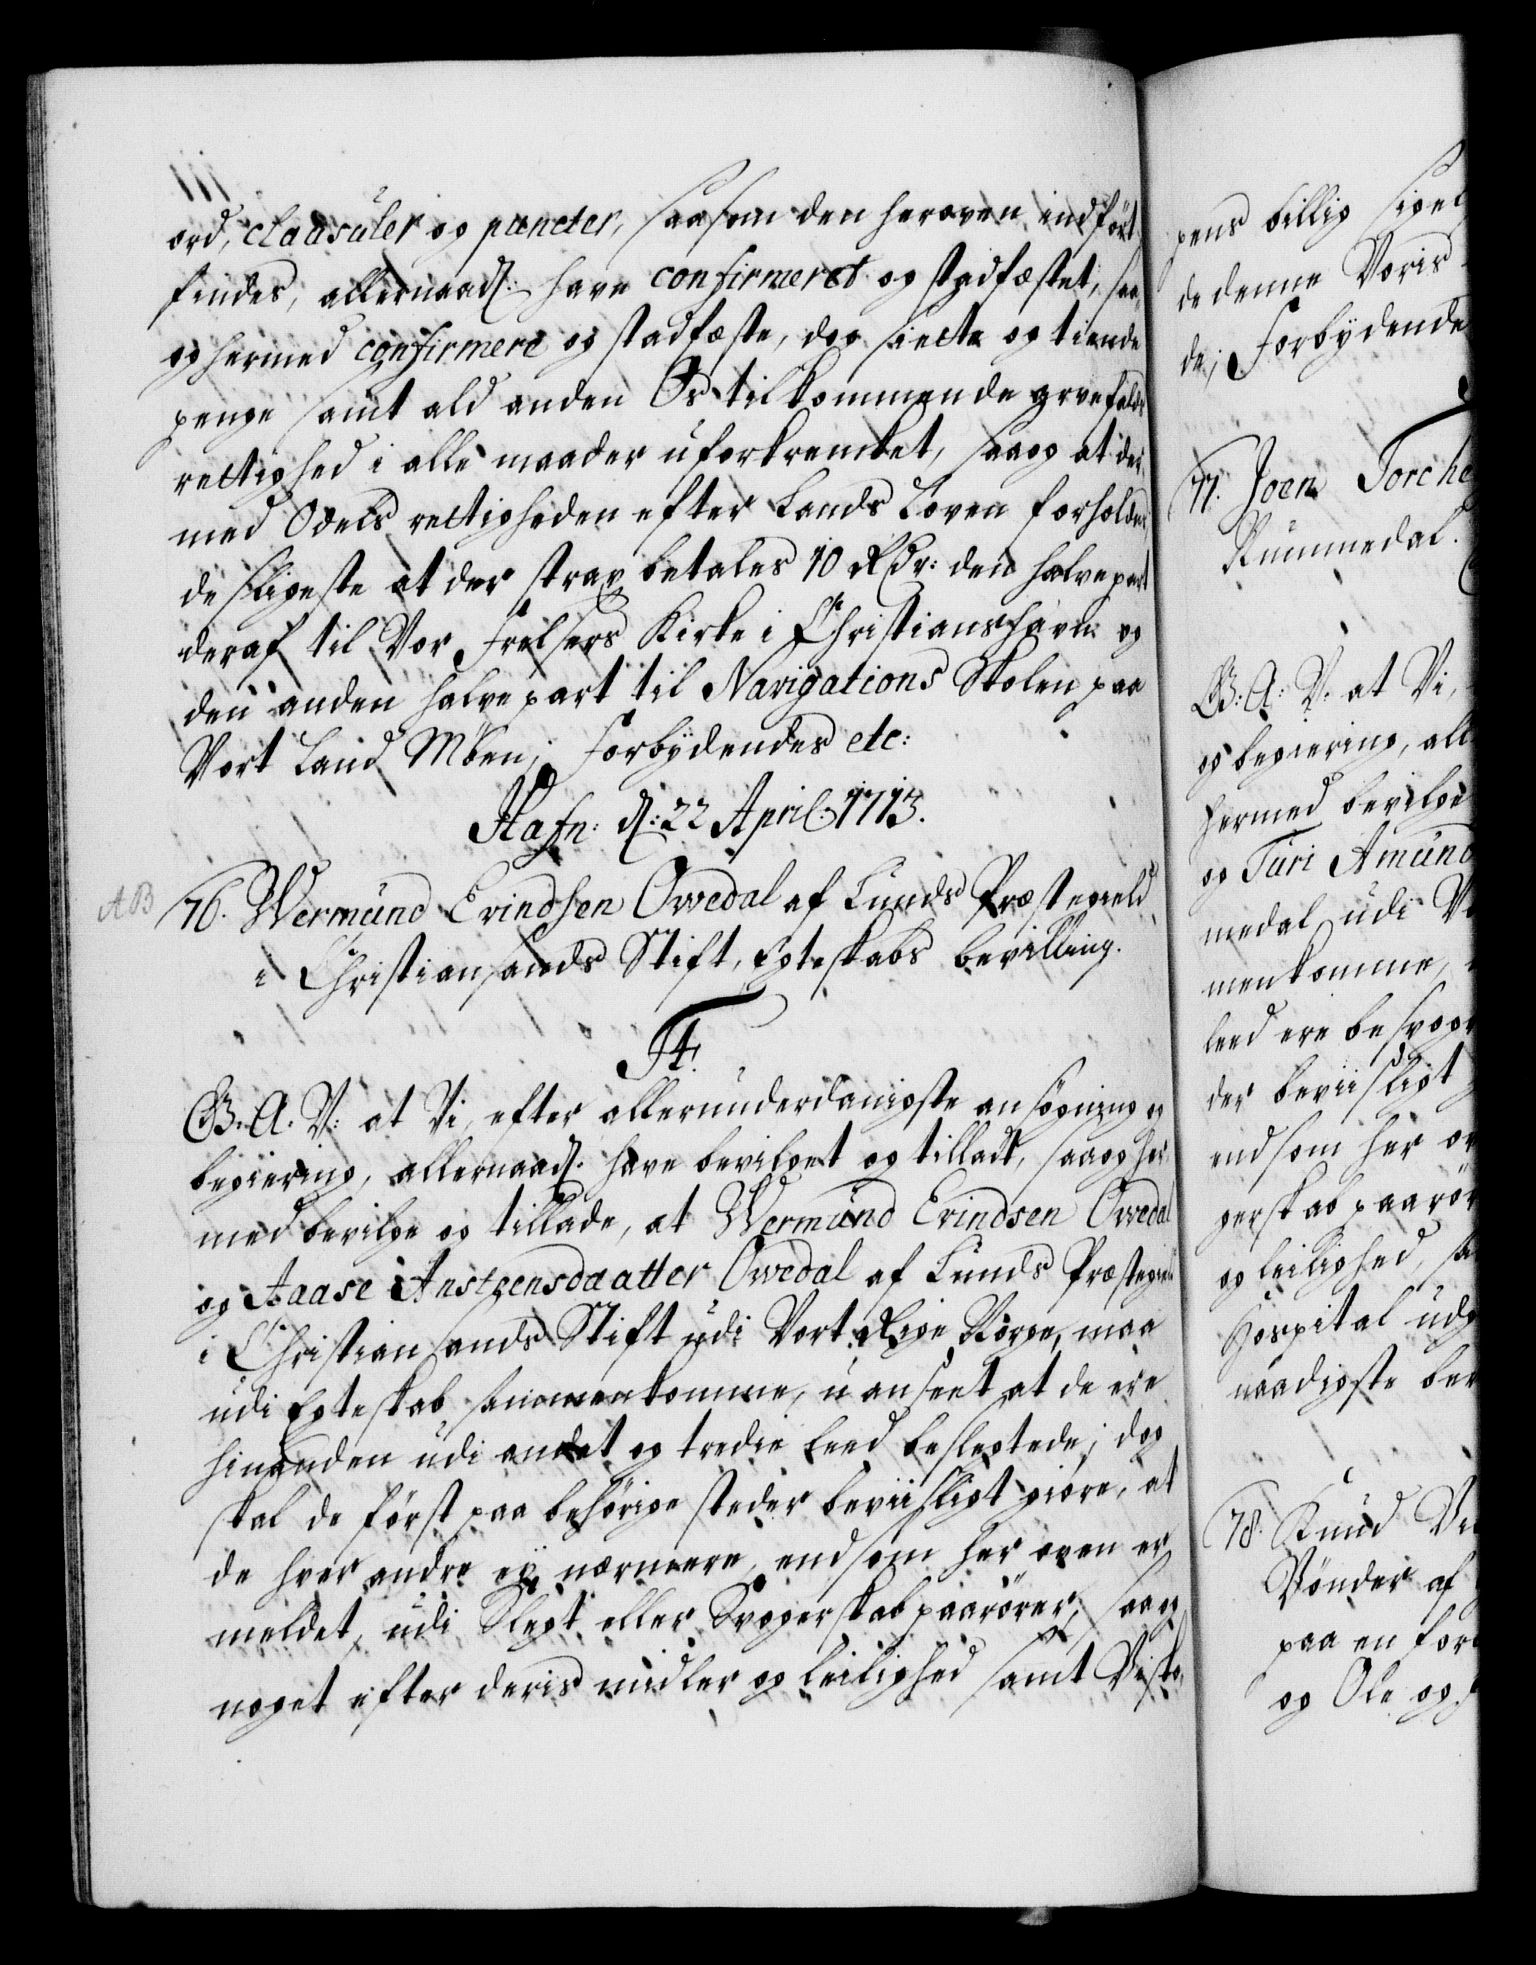 ord, claasuler og puncter, saasom den heroven indført
findes, allernaad: have confirmeret og stadfæstet, saa
og hermed confirmere og stadfæste, dog siette og tiende
penge samt ald anden Os tilkommende arvefalds
rettighed i alle maader uforkrenket, saa og at der
med Odels rettigheden efter Lands Loven forholdes,
desligeste at der strax betales 10 Rdr: den halvepart
deraf til Vor Frelsers Kirke i Christianshavn og
den anden halvepart til Navigations Skolen paa
Vort Land Möen; Forbydendes etc:
Hafn: d: 22 April: 1713.
AB
76. Wermund Evindsen Owedal af Lunds Præstegield
i Christiansands Stift, Egteskabs bevilling.
F4.
G. A. V: at Vi, efter allerunderdanigste ansøgning og
begiering, allernaad: have bevilget og tilladt, saa og her,
med bevilge og tillade, at Wermund Evindsen Owedal
og Aaase Ansteensdaatter Owedal af Lunds Præstegield
i Christiansands Stift udi Vort Rige Norge, maa
udi Egteskab sammenkomme, uanseet at de ere
hinanden udi andet og tredie Leed beslegtede; dog
skal de først paa behörige steder beviisligt giøre, at
de hver andre ey nærmere, end som her oven er
meldet, udi Slegt eller Svogerskab paarörer, saa og
noget efter deris midler og leilighed samt Bisko,
pens billig
de denne Voris
de, Forbydende
77. Joen Torche
Nummedal.
G: A: V. at Vi,
og begiering, all
hermed bevilge
og Turi Amund
medal udi V
menkomme,
leed ere besvogr
der beviisligt
end som her ov
gerskab paarör
og leilighed, sa
Hospital udg
naadigste bev
78. Knud Vi
Vønder af
paa en for
og Ole og